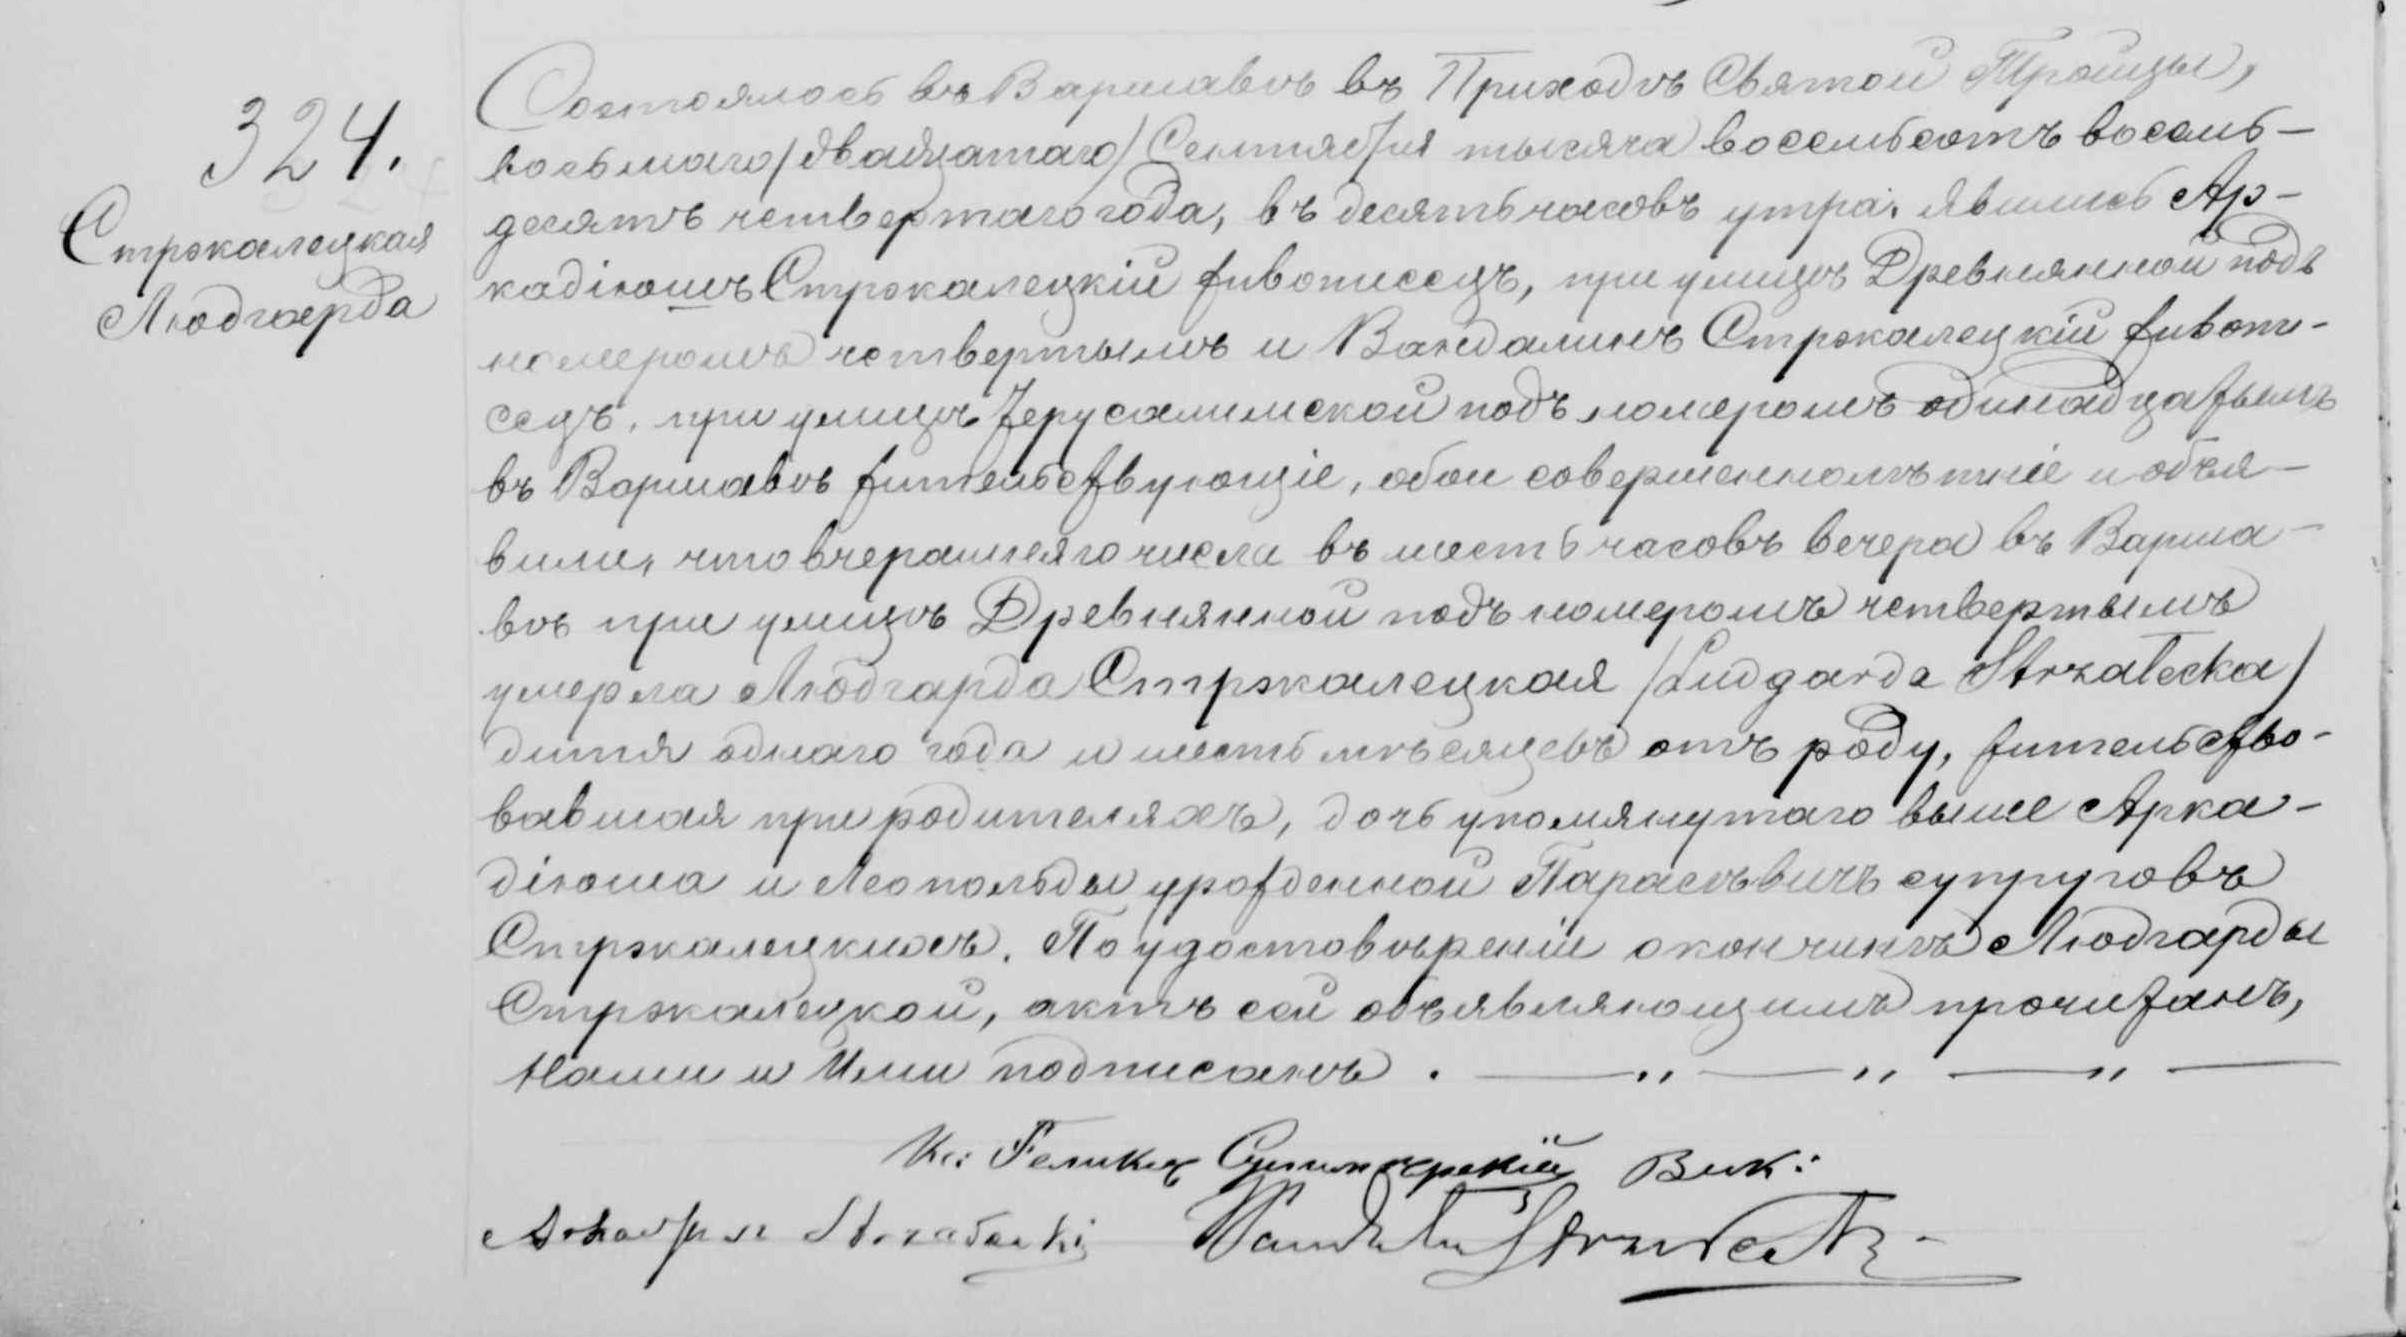 324.
Стржалецкая
Людгарда
Состоялось въ Варшавѣ въ Приходѣ Святой Троицы,
восьмаго /двадцатаго/ Сентября тысяча восемьсотъ восемь-
десятъ четвертаго года, въ десять часовъ утра. Явились Ар-
кадіюшъ Стржалецкій живописецъ, при улицѣ Древнянной подъ
номеромъ четвертымъ и Вандалинъ Стржалецкій живопи-
сецъ, при улицѣ Іерусалимской подъ номеромъ одинадцатымъ
въ Варшавѣ жительствующіе, обои совершеннолѣтніе и объя-
вили, что вчерашняго числа въ шесть часовъ вечера въ Варша-
вѣ при улицѣ Древнянной подъ номеромъ четвертымъ
умерла Людгарда Стржалецкая /Ludgarda Strzałecka/
дитя одного года и шесть мѣсяцевъ отъ роду, жительство-
вавшая при родителяхъ, дочь упомянутаго выше Арка-
діюша и Леопольды урожденной Парасѣвичъ супруговъ
Стржалецкихъ. По удостовѣреніи о кончинѣ Людгарды
Стржалецкой, актъ сей объявляющимъ прочитанъ,
Нами и Ими подписанъ. — „ — „ — „ —
Кс: Феликсъ Вик:
Strzałecki Strzałecki